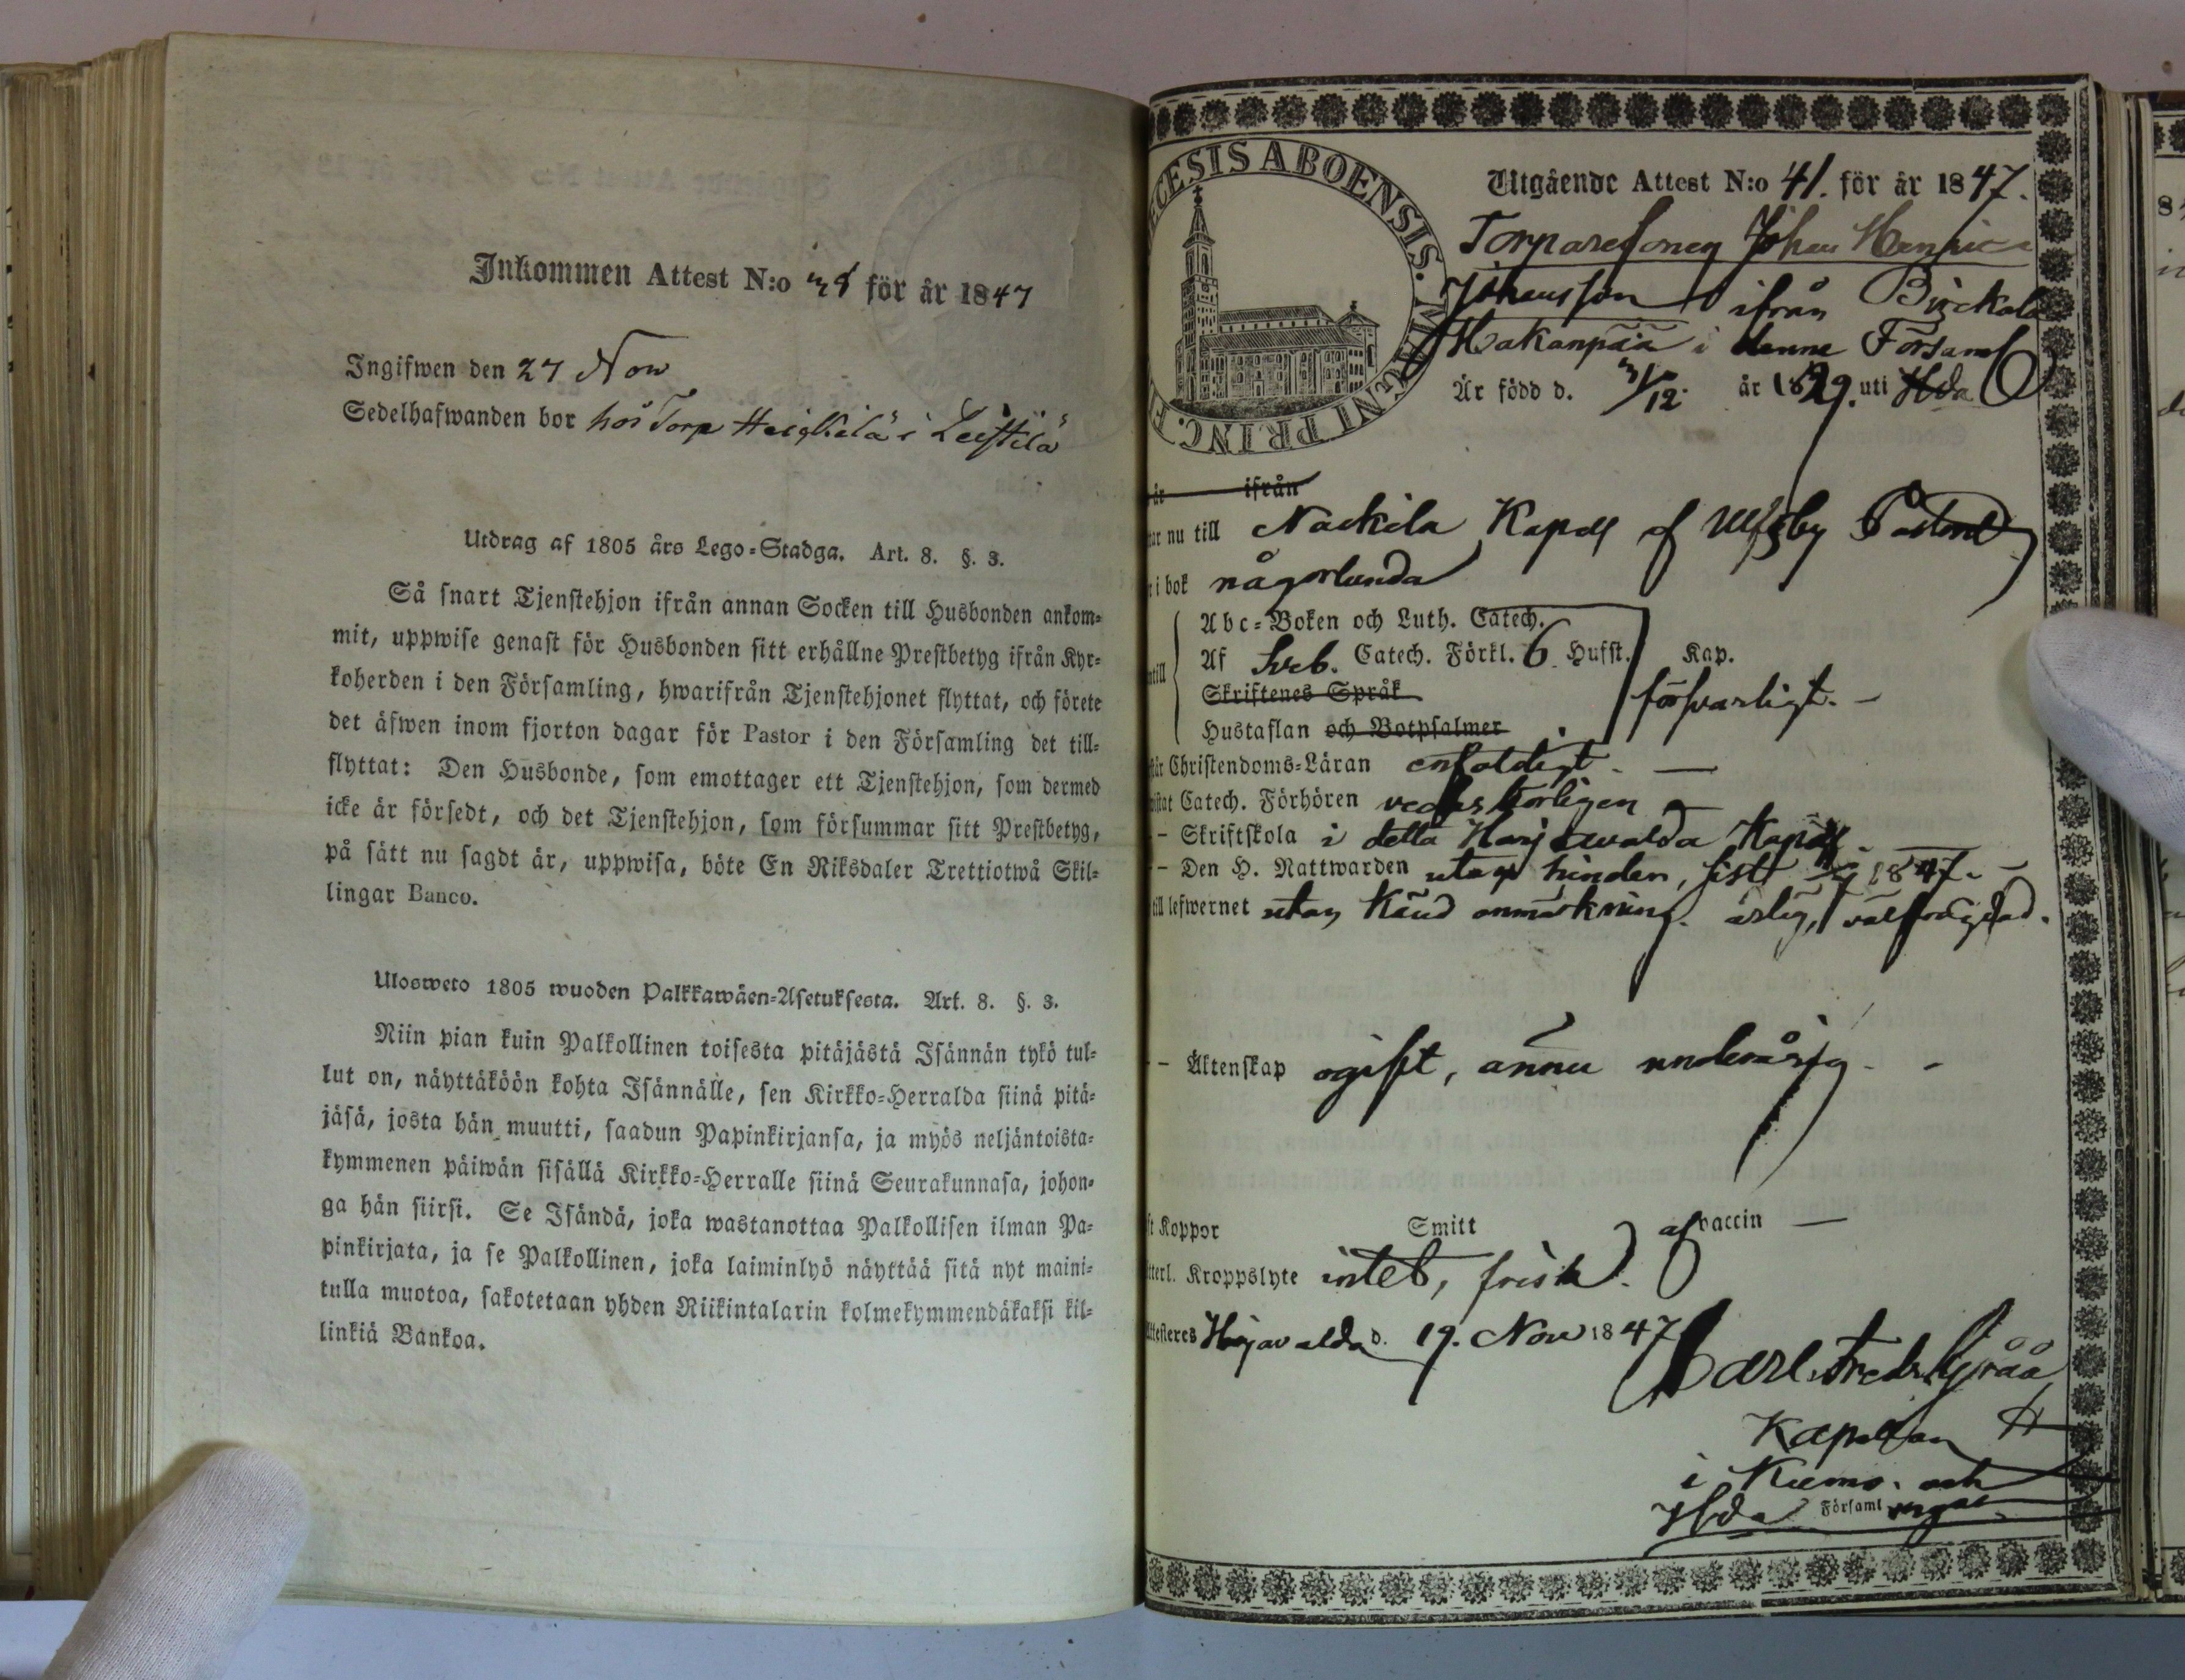 Inkommen Attest N:o 38 för år 1847
Ingifwen den 27 Nov
Sedelhafwanden bor hos Torp Heickilä i Leistilä
Utdrag af 1805 års Lego-Stadga. Art. 8. §. 3.
Så snart Tjenstehjon ifrån annan Socken till Husbonden ankom-
mit, uppwise genast för Husbonden sitt erhållne Prestbetyg ifrån Kyr-
koherden i den Församling, hwarifrån Tjenstehjonet flyttat, och förete
det äfwen inom fjorton dagar för Pastor i den Församling det till-
flyttat: Den Husbonde, som emottager ett Tjenstehjon, som dermed
icke är försedt, och det Tjenstehjon, som försummar sitt Prestbetyg,
på sätt nu sagdt är, uppwisa, böte En Riksdaler Trettiotwå Skil-
lingar Banco.
Ulosweto 1805 wuoden Palkkawäen-Asetuksesta. Art. 8. §. 3.
Niin pian kuin Palkollinen toisesta pitäjästä Isännän tykö tul-
lut on, näyttäköön kohta Isännälle, sen Kirkko-Herralda siinä pitä-
jäsä, josta hän muutti, saadun Papinkirjansa, ja myös neljäntoista-
kymmenen päiwän sisällä Kirkko-Herralle siinä Seurakunnasa, johon-
ga hän siirsi. Se Isändä, joka wastanottaa Palkollisen ilman Pa-
pinkirjata, ja se Palkollinen, joka laiminlyö näyttää sitä nyt maini-
tulla muotoa, sakotetaan yhden Riikintalarin kolmekymmendäkaksi kil-
linkiä Bankoa.
ECESIS ABOENSIS. MAGNI PRINC. F
Utgående Attest N:o 41. för år 1847.
Torparesonen Johan Henric
Johansson ifrån Birckala
Hakanpää i denne Församl
Är född d. 3/12. år 1829. uti Hvda
är ifrån
ar nu till Nackila Kapell af Ulfsby Pastorat
i bok någorlunda
Abc-Boken och Luth. Catech.
Af Sveb. Catech. Förkl. 6 Hufst. Kap.
Skriftenes Språk försvarligt.
Hustaflan och Botpsalmer
Christendoms-Läran enfaldigt
Catech. Förhören vederbörligen
Skriftskola i detta Harjavalda Kapell
Den H. Nattwarden utan hinder, sist 1847.
till lefwernet utan känd anmärkning. ärlig, välfrägdad.
Äktenskap ogift, ännu underårig
Koppor Smitt af vaccin
tterl. Kroppslyte intet, frisk.
Attesteres Harjavalda d. 19. Nov 1847
Carl Fredr. Gråå
Kapellan
i Kumo. och
Hvda Församlingar